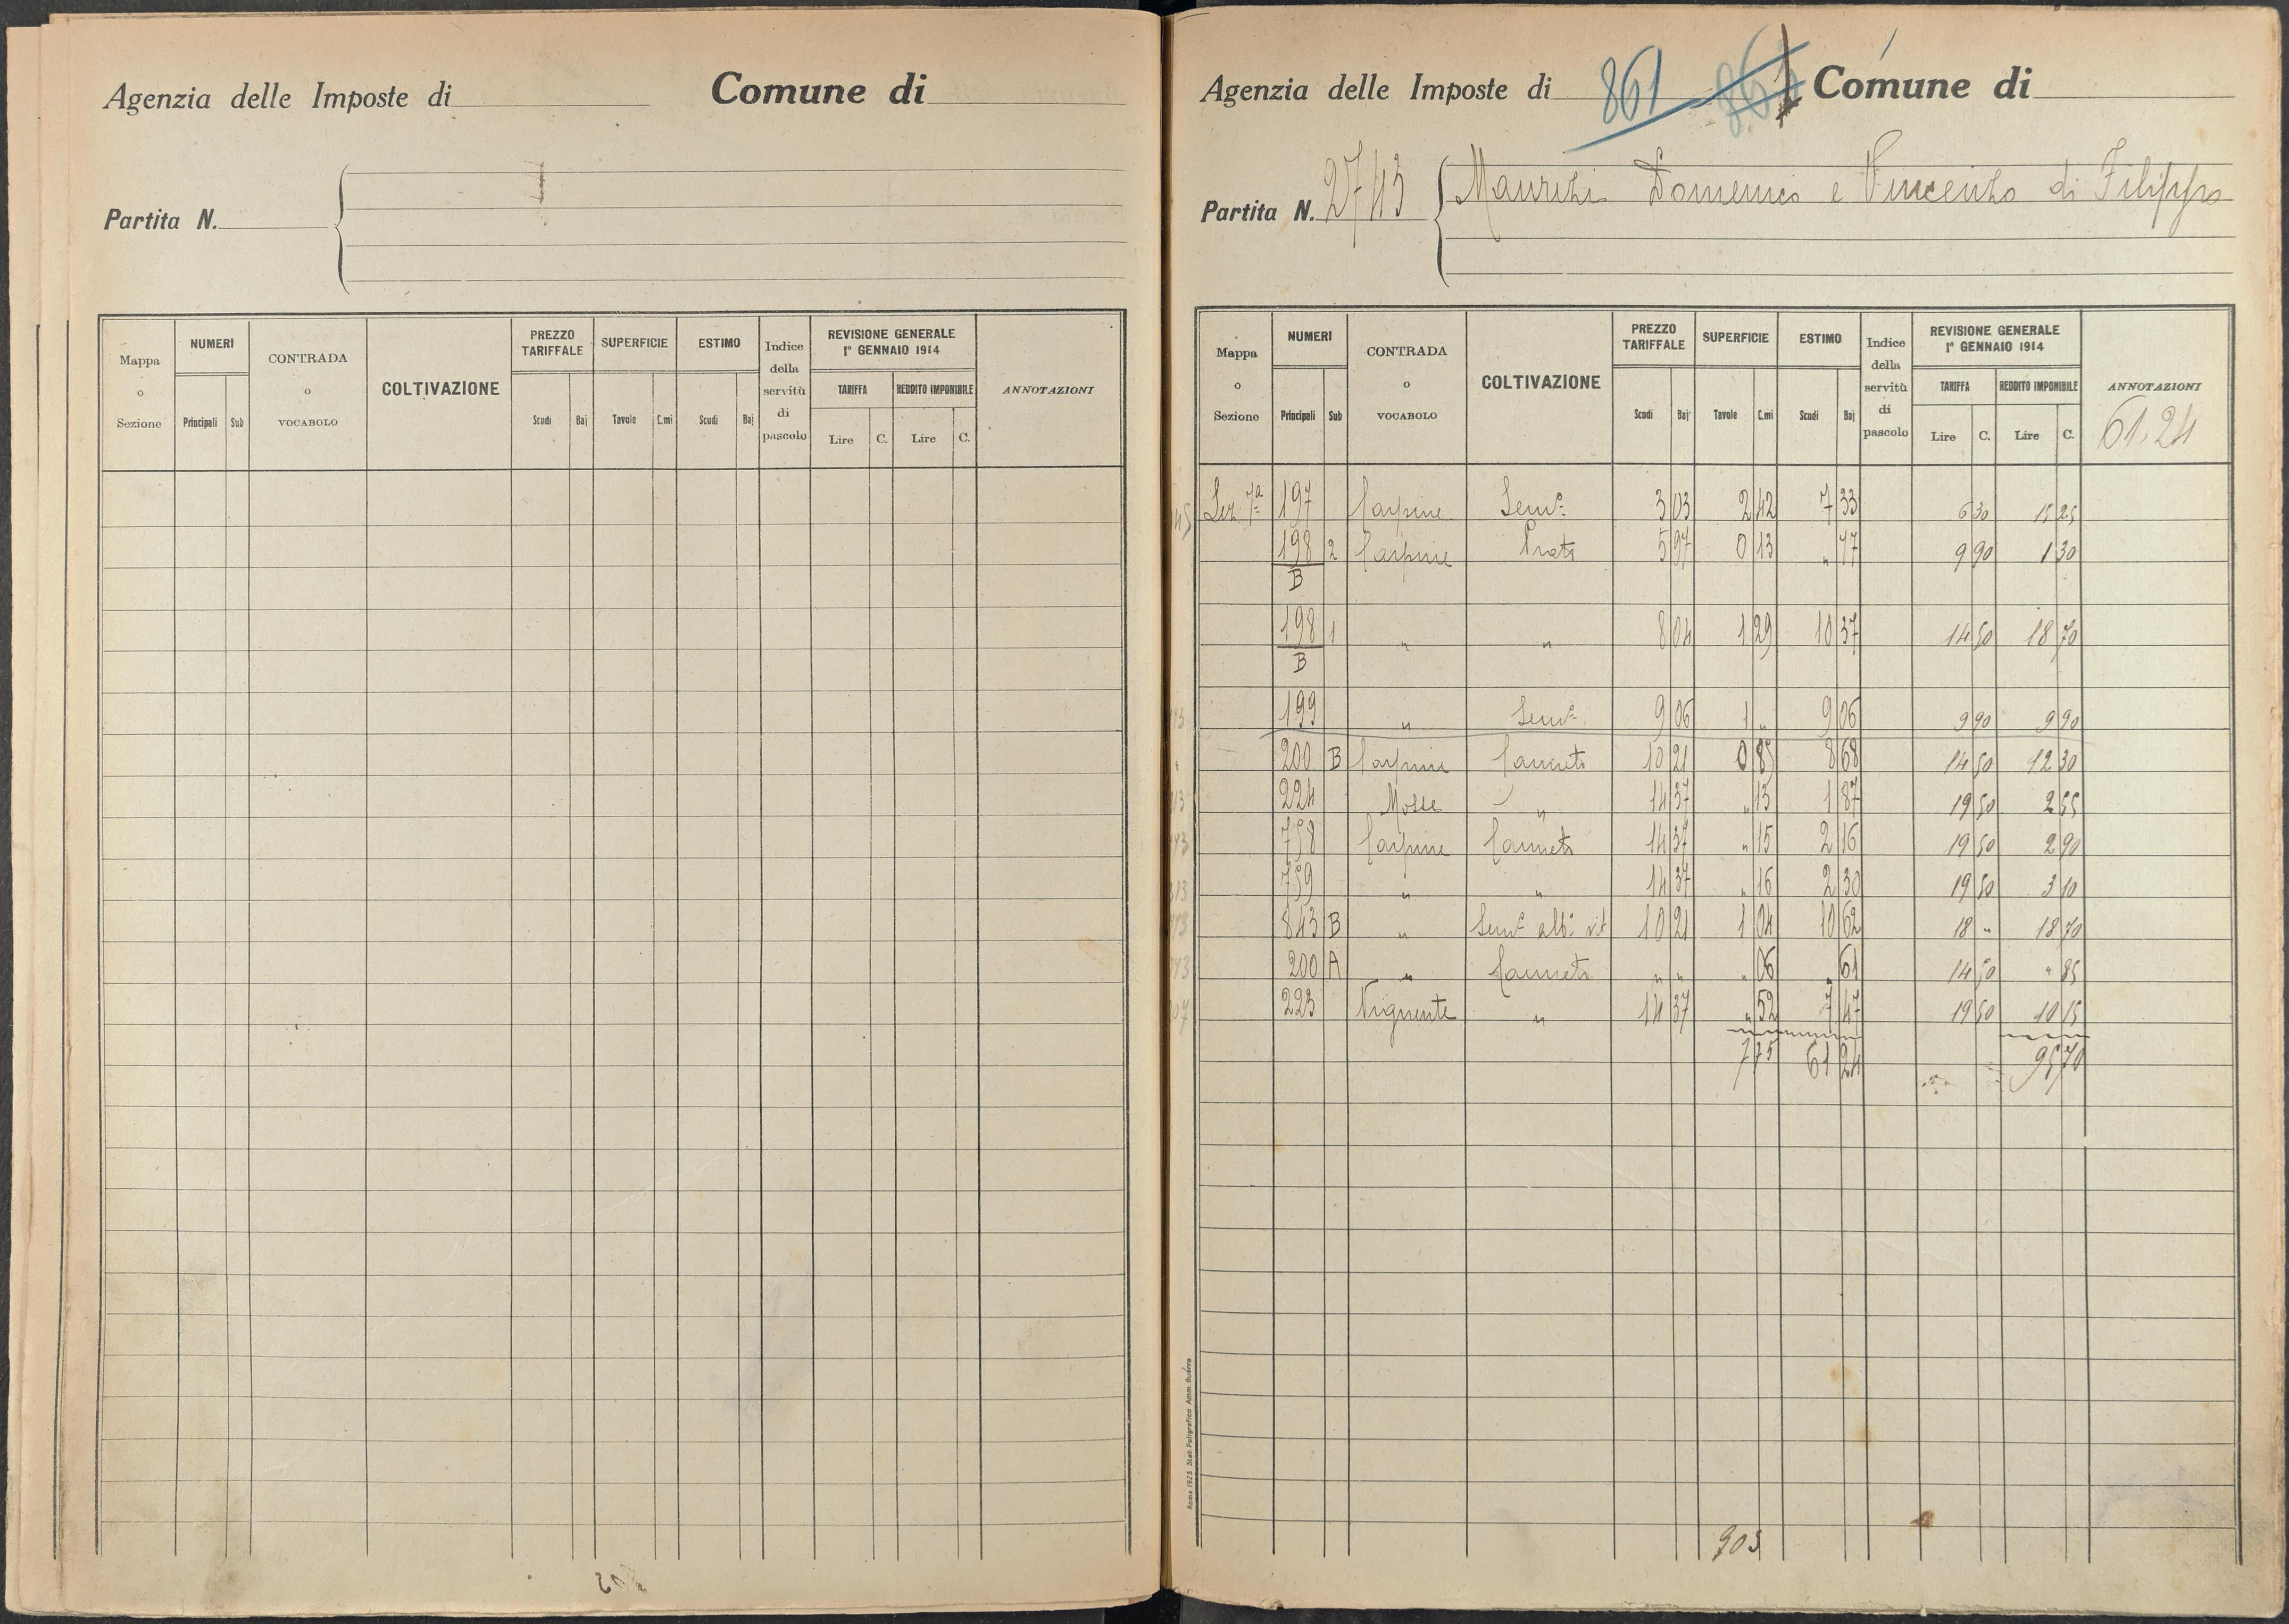 Agenzia delle Imposte di Comune di
Partita N.
Mappa o Sezione NUMERI Principali Sub CONTRADA o VOCABOLO COLTIVAZIONE PREZZO TARIFFALE Scudi Baj SUPERFICIE Tavole C.mi ESTIMO Scudi Baj Indice della servitù di pascolo REVISIONE GENERALE 1º GENNAIO 1914 TARIFFA Lire C. REDDITO IMPONIBILE Lire C. ANNOTAZIONI
Agenzia delle Imposte di 861 861 Comune di
Partita N. 2743 Maurizi Domenico e Vincenzo di Filippo
Mappa o Sezione NUMERI Principali Sub CONTRADA o VOCABOLO COLTIVAZIONE PREZZO TARIFFALE Scudi Baj SUPERFICIE Tavole C.mi ESTIMO Scudi Baj Indice della servitù di pascolo REVISIONE GENERALE 1º GENNAIO 1914 TARIFFA Lire C. REDDITO IMPONIBILE Lire C. ANNOTAZIONI
61.24
Sez. 7ª 197 Carpine Semº 3 03 2 42 7 33 6 30 15 25
198/B 2 Carpine Prato 5 97 0 13 " 77 9 90 1 30
198/B 1 " " 8 04 1 29 10 37 14 50 18 70
199 " Semº 9 06 1 " 9 06 9 90 9 90
200 B Carpine Canneto 10 21 0 85 8 68 14 50 12 30
224 Molle " 14 37 " 13 1 87 19 50 2 55
758 Carpine Canneto 14 37 " 15 2 16 19 50 2 90
759 " " 14 37 " 16 2 30 19 50 3 10
843 B " Semº albº vit 10 21 1 04 10 62 18 " 18 70
200 A " Canneto " " " 06 " 61 14 50 " 85
223 Vignente " 14 37 " 52 7 47 19 50 10 15
7 75 61 24 95 70
Roma 1923 Stab. Poligrafico Amm. Guerra
903